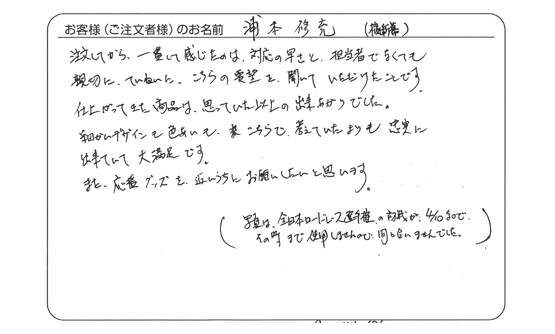 お客様(ご注文者様)のお名前 浦本修充
注文してから、一貫して感じたのは、対応の早さと、担当者でなくても
親切に、ていねいに、こちらの要望を、聞いていただけたことです
仕上がってきた商品は、思っていた以上の出来あがりでした。
細かいデザインも色あいも、こちらで、考えていたよりも忠実に
出来ていて大満足です。
また、応援グッズを、近いうちにお願いしたいと思います。
(写真は、全日本ロードレース選手権の初戦が、4/10なので、
その時まで使用しませんので、間に合いませんでした。)